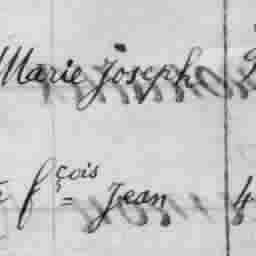 Marie Joseph
fçois Jean 4